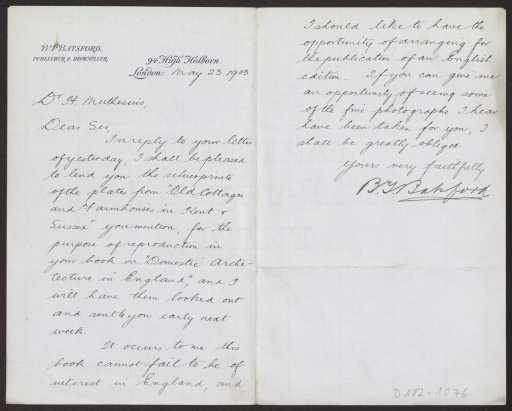 B.T. BATSFORD,
PUBLISHER & BOOKSELLER,
94 High Holborn
London: May 23 1903
Dr H. Muthesius,
Dear Sir,
In reply to your letter
of yesterday, I shall be pleased
to lend you the silverprints
of the plates from "Old Cottages
and Farmhouses in Kent &
Sussex" you mention, for the
purpose of reproduction in
your book on "Domestic Archi-
tecture in England", and I
will have them looked out
and sent to you early next
week.
It occurs to me this
book cannot fail to be of
interest in England, and
I should like to have the
opportunity of arranging for
the publication of an English
edition. If you can give me
an opportunity of seeing some
of the fine photographs I hear
have been taken for you, I
shall be greatly obliged
Yours very faithfully
B T Batsford